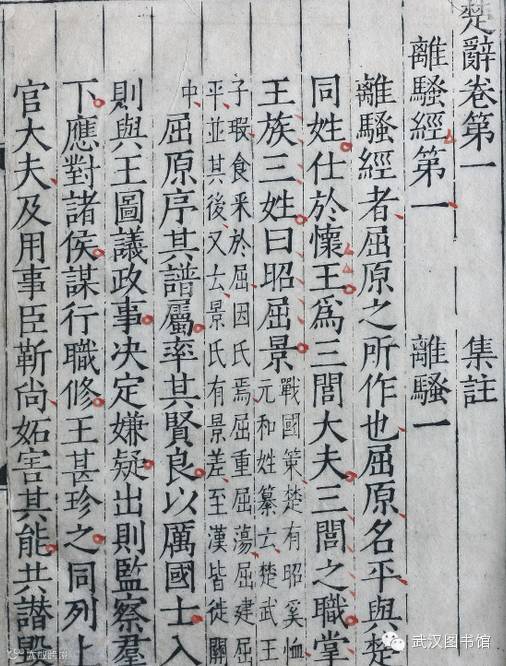 楚辭卷第一 集註
離騷經第一 離騷一
離騷經者屈原之所作也屈原名平與楚
同姓仕於懷王爲三閭大夫三閭之職掌
王族三姓曰昭屈景
戰國策楚有昭奚恤
元和姓纂云楚武王
子瑕食采於屈因氏焉屈重屈蕩屈建屈
平並其後又云景氏有景差至漢皆徙關
中
屈原序其譜屬率其賢良以厲國士入
則與王圖議政事决定嫌疑出則監察羣
下應對諸侯謀行職修王甚珍之同列上
官大夫及用事臣靳尚妬害其能共譖毀
武汉图书馆